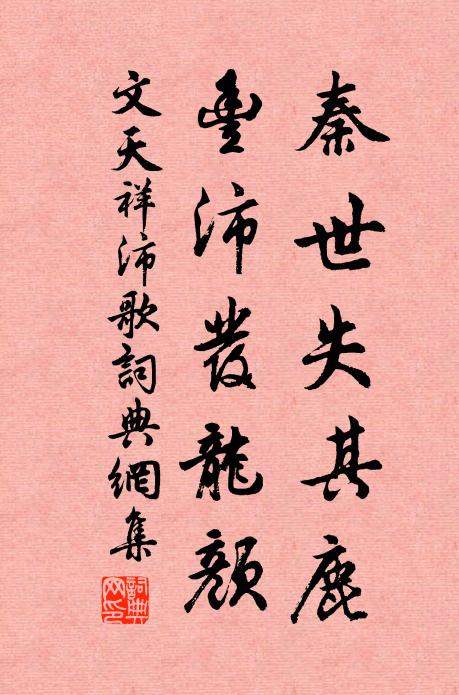 秦世失其鹿
豐沛發龍顏
文天祥沛歌詞典網集
詞典网印